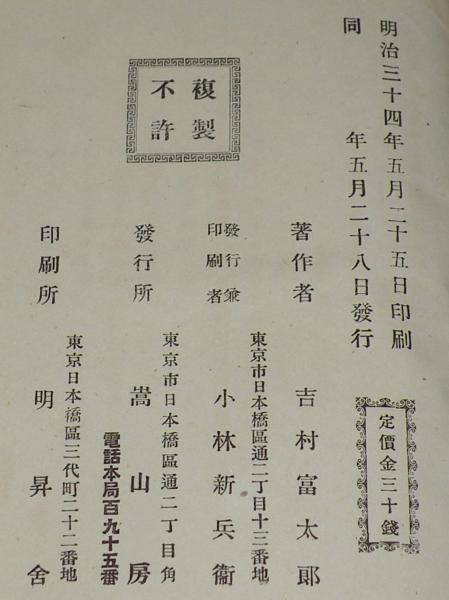 明治三十四年五月二十五日印刷
同　　年五月二十八日發行
定價金三十錢
複製
不許
著作者　吉村富太郎
東京市日本橋區通二丁目十三番地
發行兼
印刷者　小林新兵衞
東京市日本橋區通二丁目角
發行所　嵩山房
電話本局百九十五番
東京日本橋區三代町二十二番地
印刷所　明昇舍